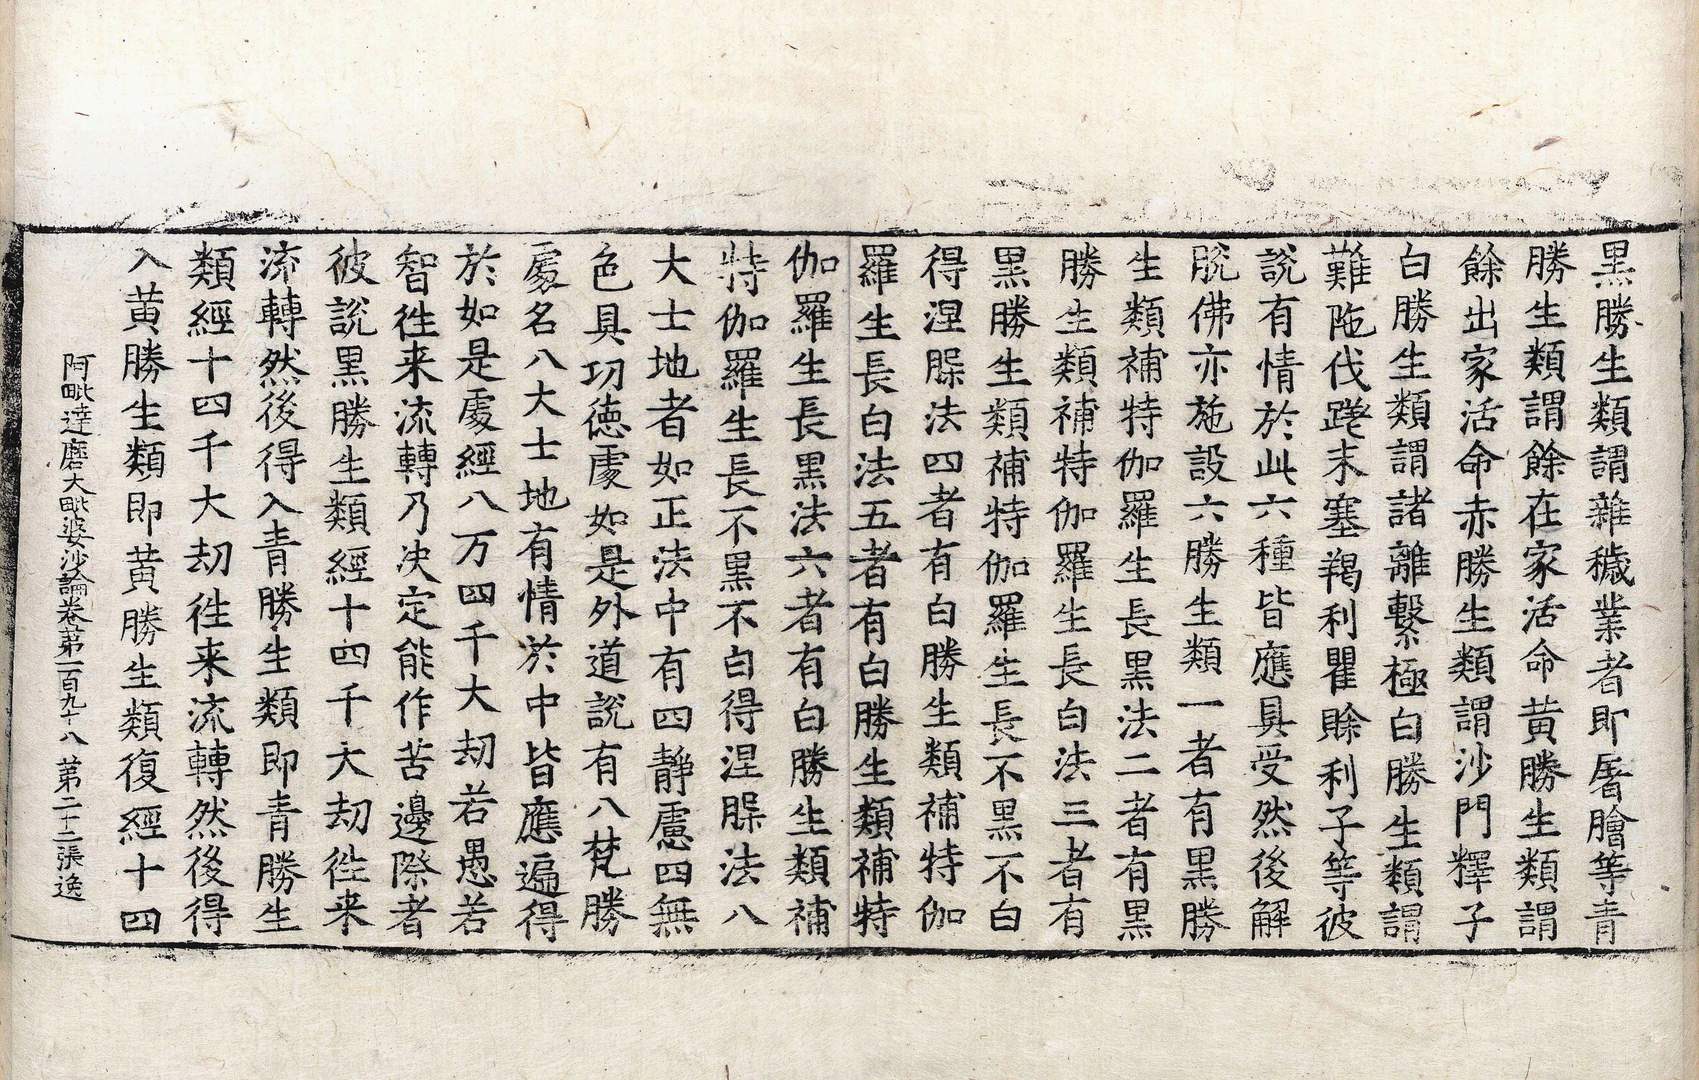 黒勝生類謂雜穢業者即屠膾等青
勝生類謂餘在家活命黄勝生類謂
餘出家活命赤勝生類謂沙門釋子
白勝生類謂諸離繫極白勝生類謂
難陁伐蹉末塞羯利瞿賒利子等彼
説有情於此六種皆應具受然後解
脱佛亦施設六勝生類一者有黒勝
生類補特伽羅生長黒法二者有黒
勝生類補特伽羅生長白法三者有
黒勝生類補特伽羅生長不黒不白
得涅槃法四者有白勝生類補特伽
羅生長白法五者有白勝生類補特
伽羅生長黒法六者有白勝生類補
特伽羅生長不黒不白得涅槃法八
大士地者如正法中有四静慮四無
色具功徳處如是外道説有八梵勝
處名八大士地有情於中皆應遍得
於如是處經八万四千大劫若愚若
智往来流轉乃决定能作苦邊際者
彼説黒勝生類經十四千大劫往来
流轉然後得入青勝生類即青勝生
類經十四千大劫往来流轉然後得
入黄勝生類即黄勝生類復經十四
阿毗達磨大毗婆沙論卷第一百九十八 第二十二張 逸